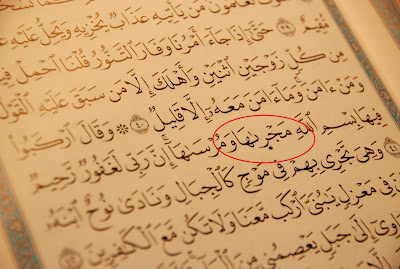 تَعْلَمُونَ مَن يَأْتِيهِ عَذَابٌ يُخْزِيهِ وَيَحِلُّ عَلَيْهِ
مُّقِيمٌ ٣٩ حَتَّىٰٓ إِذَا جَآءَ أَمْرُنَا وَفَارَ ٱلتَّنُّورُ قُلْنَا ٱحْمِلْ فِيهَا
مِن كُلٍّ زَوْجَيْنِ ٱثْنَيْنِ وَأَهْلَكَ إِلَّا مَن سَبَقَ عَلَيْهِ ٱلْقَوْلُ
وَمَنْ ءَامَنَ وَمَآ ءَامَنَ مَعَهُۥٓ إِلَّا قَلِيلٌ ٤٠ ۞ وَقَالَ ٱرْكَبُوا۟
فِيهَا بِسْمِ ٱللَّهِ مَجْر۪ىٰهَا وَمُرْسَىٰهَآ إِنَّ رَبِّى لَغَفُورٌ رَّحِيمٌ
وَهِىَ تَجْرِى بِهِمْ فِى مَوْجٍ كَٱلْجِبَالِ وَنَادَىٰ نُوحٌ ٱبْنَهُۥ
فِى مَعْزِلٍ يَٰبُنَىَّ ٱرْكَب مَّعَنَا وَلَا تَكُن مَّعَ ٱلْكَٰفِرِينَ
إِلَىٰ جَبَلٍ يَعْصِمُنِى